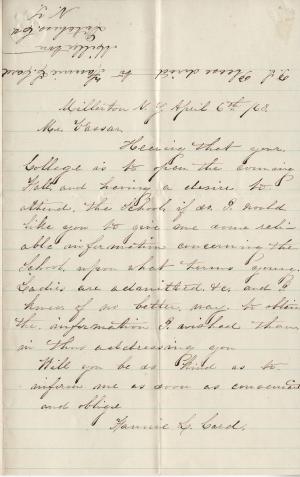 Millerton N.Y. April 6th /63
Mr. Vassar,
Heering that your
College is to open the comeing
Fall, and having a desire to
attend, the School, if so. I would
like you to give me some reli-
able information concerning the
School, upon what terms young
Ladies are admitted. &c, and I
knew of no better way to obtain
the, information I wished than
in thus addressing you
Will you be so kind as to
inform me as soon as convenient
and oblige
Fannie L. Card.
P.S. Please direct to Fannie L. Card
Millerton
Dutchess Co
N. Y.